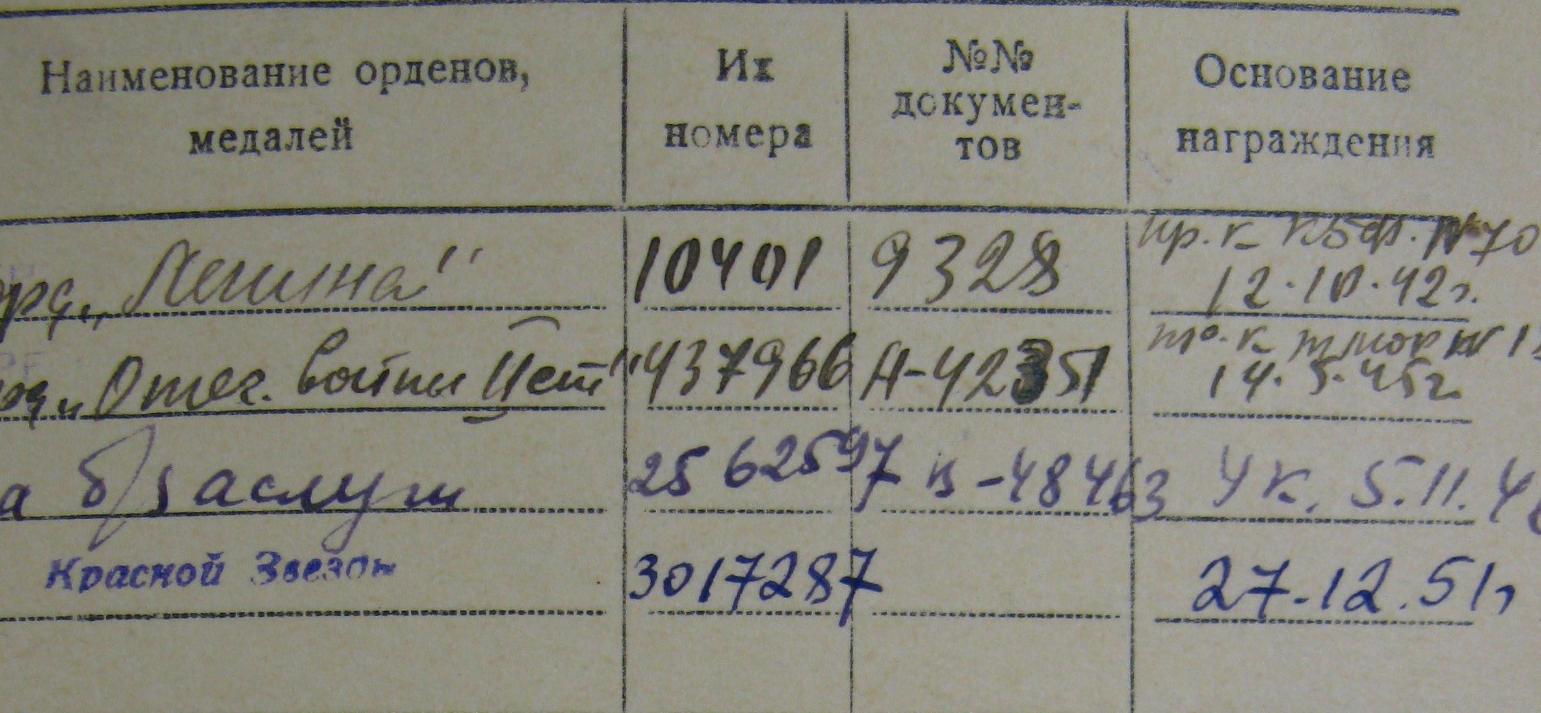 Наименование орденов,
медалей
Их
номера
№№
докумен-
тов
Основание
награждения
орд. „Ленина" 10401 9328 пр. к КБФ. №70
12.10.42г.
орд. „Отеч. войны II ст" 437966 А-42351
14.5.45г.
а б/заслуги 2562597 В-48463 Ук. 5.11.4
Красной Звезды 3017287 27.12.51г